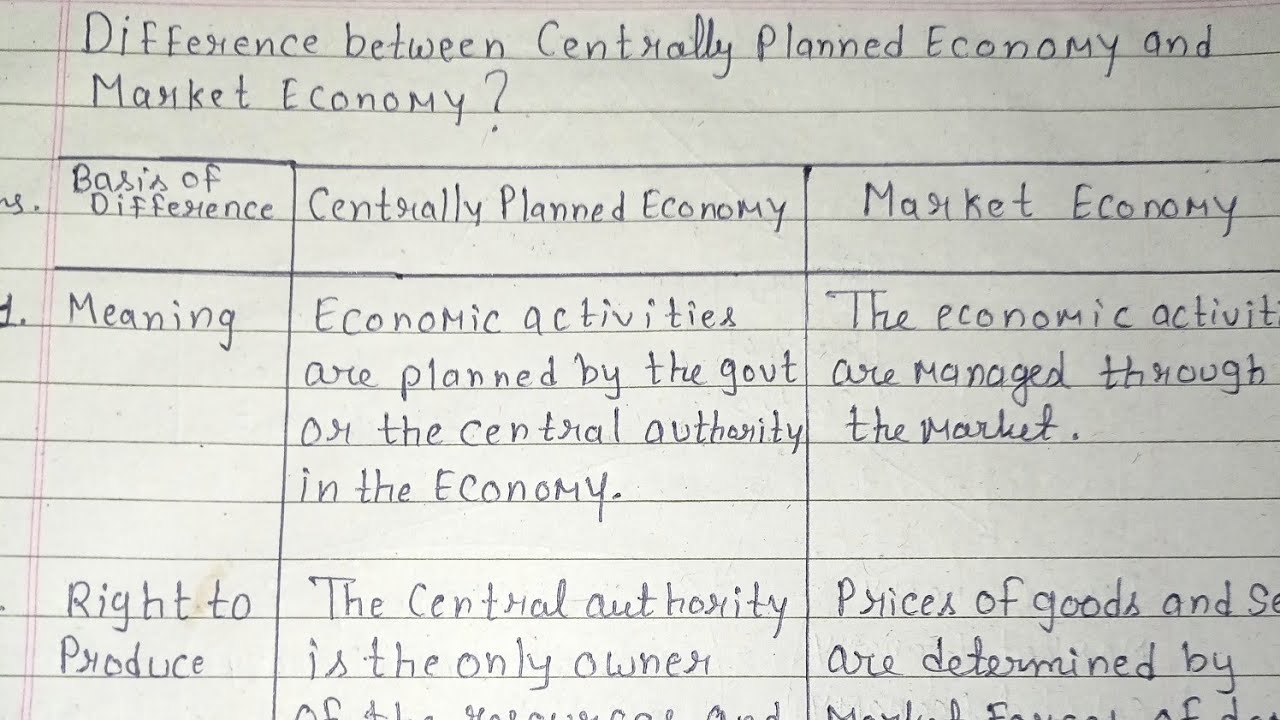 Difference between Centrally Planned Economy and
Market Economy?
Basis of
Difference
Centrally Planned Economy
Market Economy
1. Meaning
Economic activities
are planned by the govt
or the central authority
in the Economy.
The economic activit
are managed through
the market.
Right to
Produce
The Central authority
is the only owner
of the resources and
Prices of goods and Se
are determined by
Market Forces of de